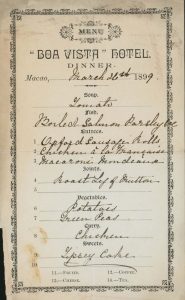 MENU
"BOA VISTA" HOTEL.
DINNER.
Macao, March 26th 1899
Soup.
Tomato
Fish.
Boiled Salmon Parsley
Entrees.
1 Oxford Sausage Rolls
2 Chicken à la Française
3 Macaroni
Joints.
4 Roast Leg of Mutton
5
Vegetables.
6 Potatoes
7 Green Peas
Curry.
8 Chicken
Sweets.
9 Tipsy Cake
10
11.—FRUITS. 12.—COFFEE.
13.—CHEESE. 14.—TEA.